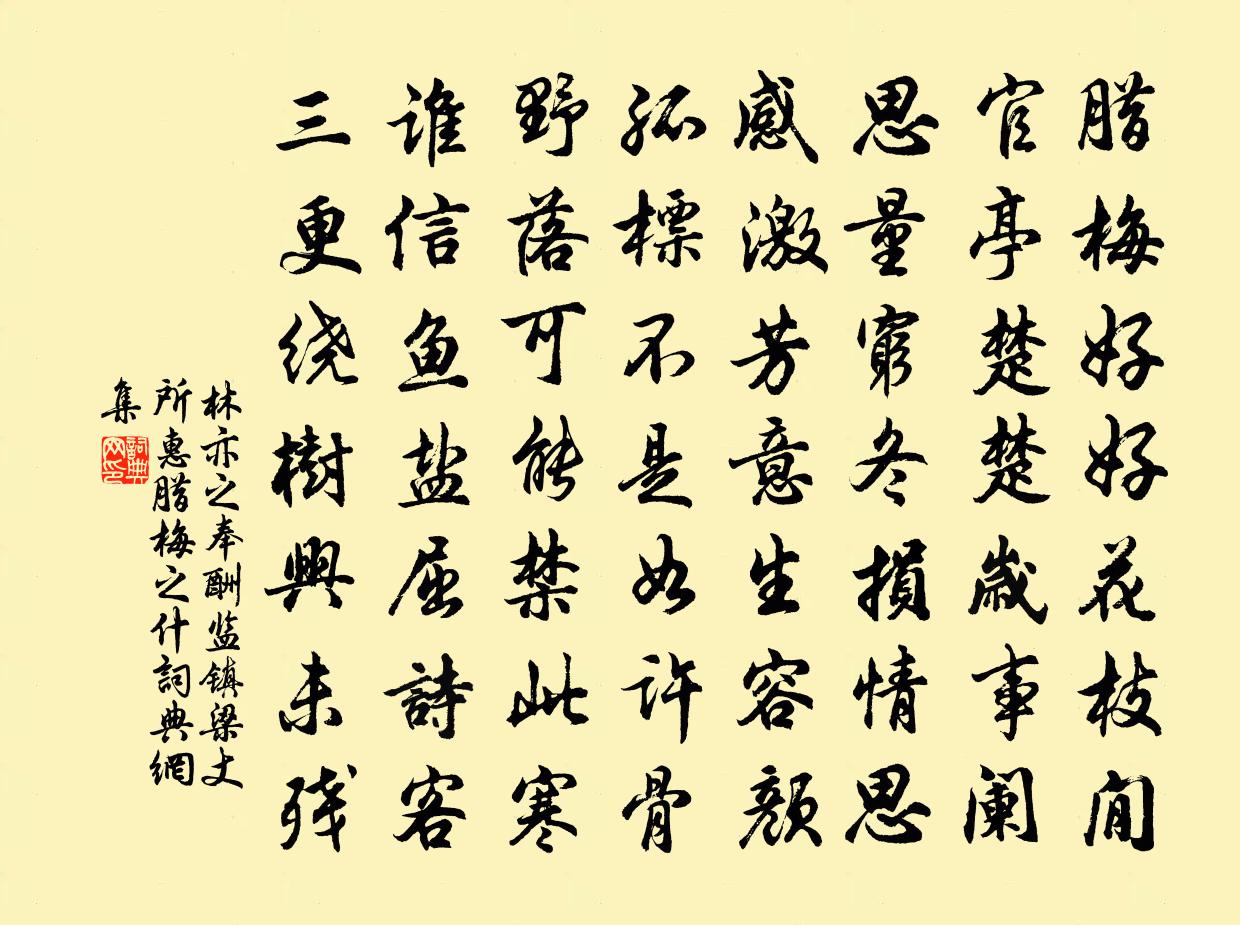 腊梅好好花枝閒
官亭楚楚歳事阑
思量窮冬損情思
感激芳意生容顔
孤標不是如许骨
野落可能禁此寒
谁信鱼盐屈詩客
三更绕樹興未残
林亦之奉酬监镇梁丈
所惠腊梅之什詞典網
集
詞典
网印